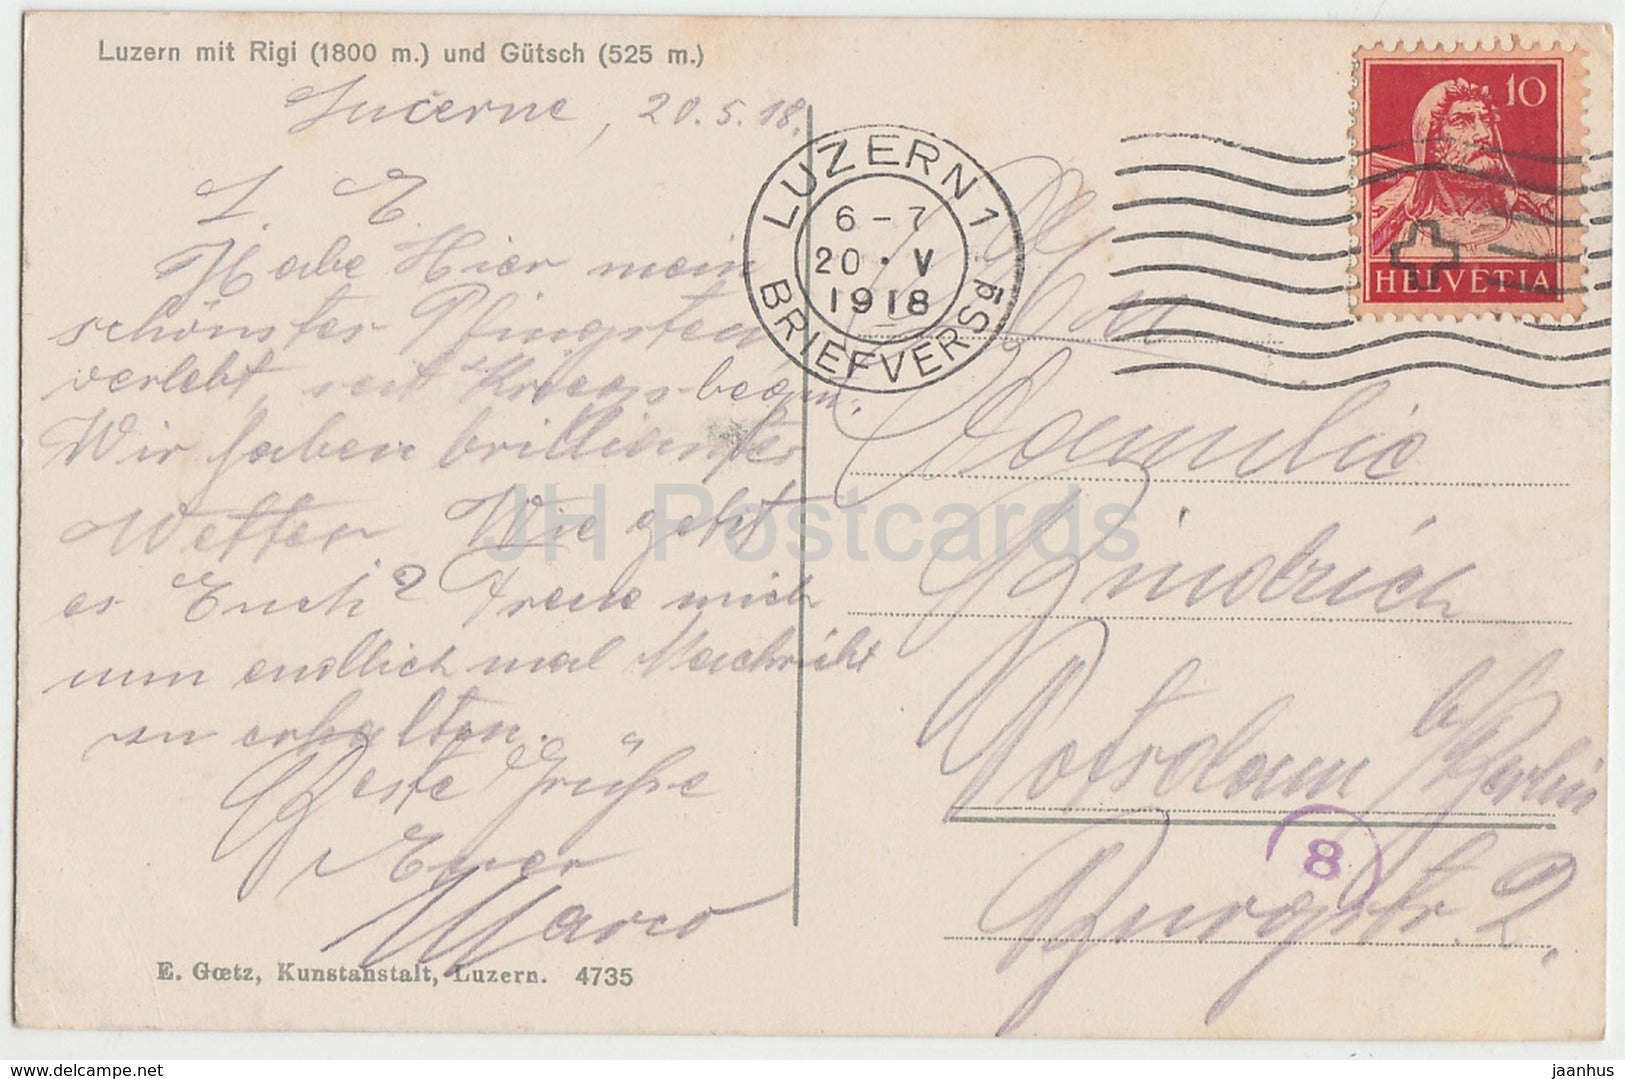 Luzern mit Rigi (1800 m.) und Gütsch (525 m.)
Lucerne, 20.5.18.
L. E.
Habe Hier mein
schönstes Pfingsten
verlebt, seit Kriegsbeginn.
Wir haben brilliantes
Wetter. Wie geht
es Euch? Freue mich
nun endlich mal Nachricht
zu erhalten.
Beste Grüße
Euer
Marco
E. Gœtz, Kunstanstalt, Luzern. 4735
LUZERN 1
6-7
20 · V
1918
BRIEFVERSd
10
HELVETIA
Familie
Potsdam b/Berlin
8
Burgstr. 2.
JH Postcards
delcampe.net
jaanhus